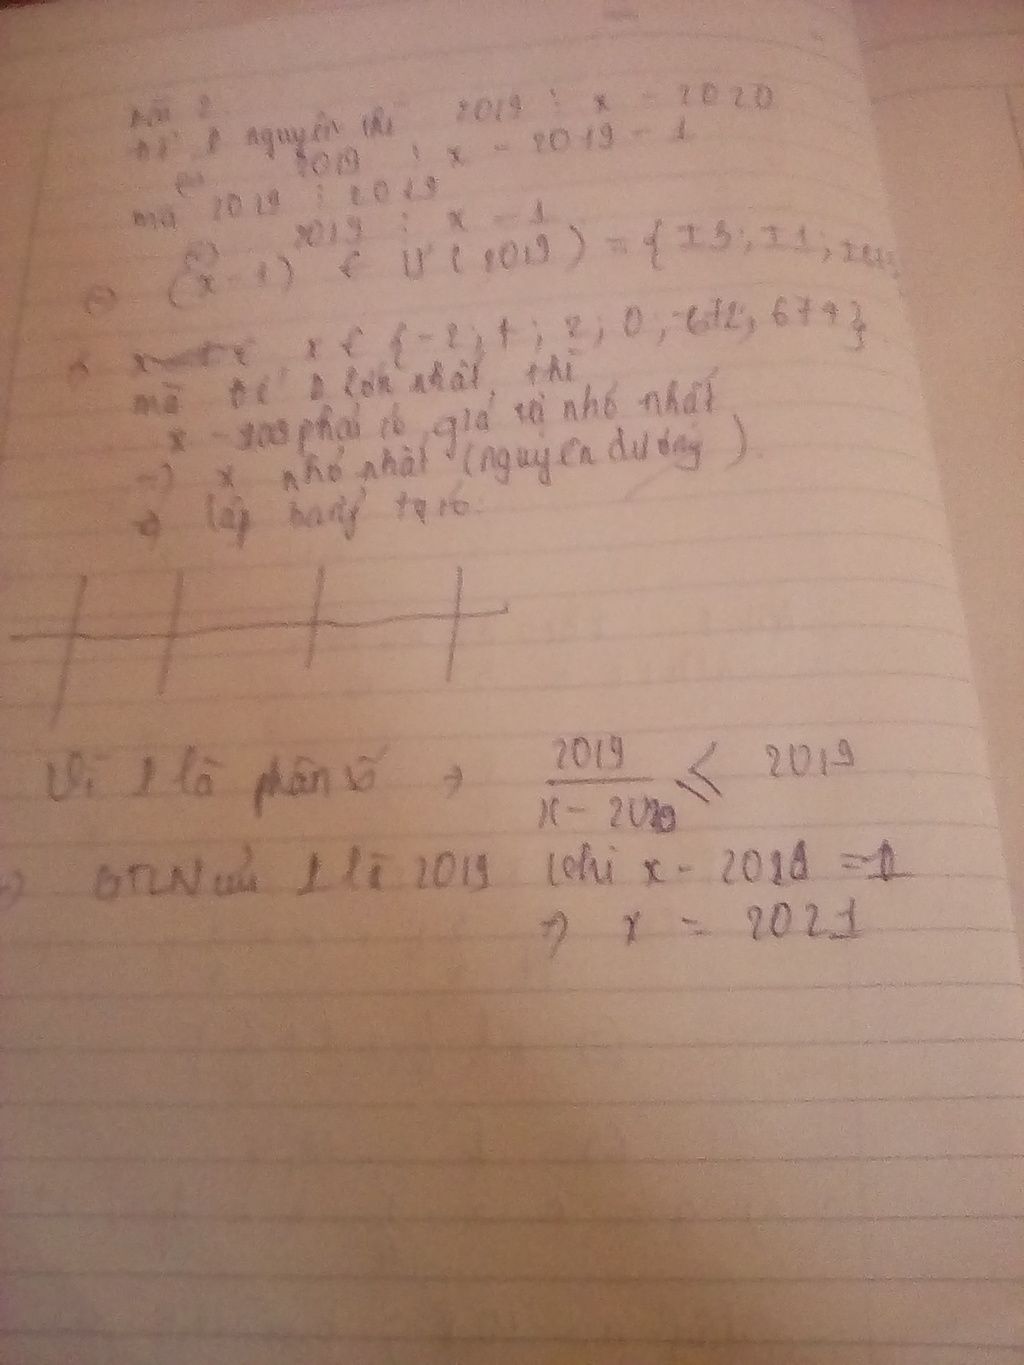 Bài 2
Để A nguyên thì 2019 ⋮ x - 2020
2019 ⋮ x - 2019 - 1
mà 2019 ⋮ 2019
=> 2019 ⋮ x - 1
=> (x - 1) ∈ Ư (2019) = {±3; ±1;
x ∈ {-2; 4; 2; 0; -672; 674}
mà để A lớn nhất thì
x - phải có giá trị nhỏ nhất
=> x nhỏ nhất (nguyên dương).
=> lập bảng ta có:
Vì A là phân số => 2019/(x - 2020) ≤ 2019
=> GTLN của A là 2019 khi x - 2020 = 1
=> x = 2021